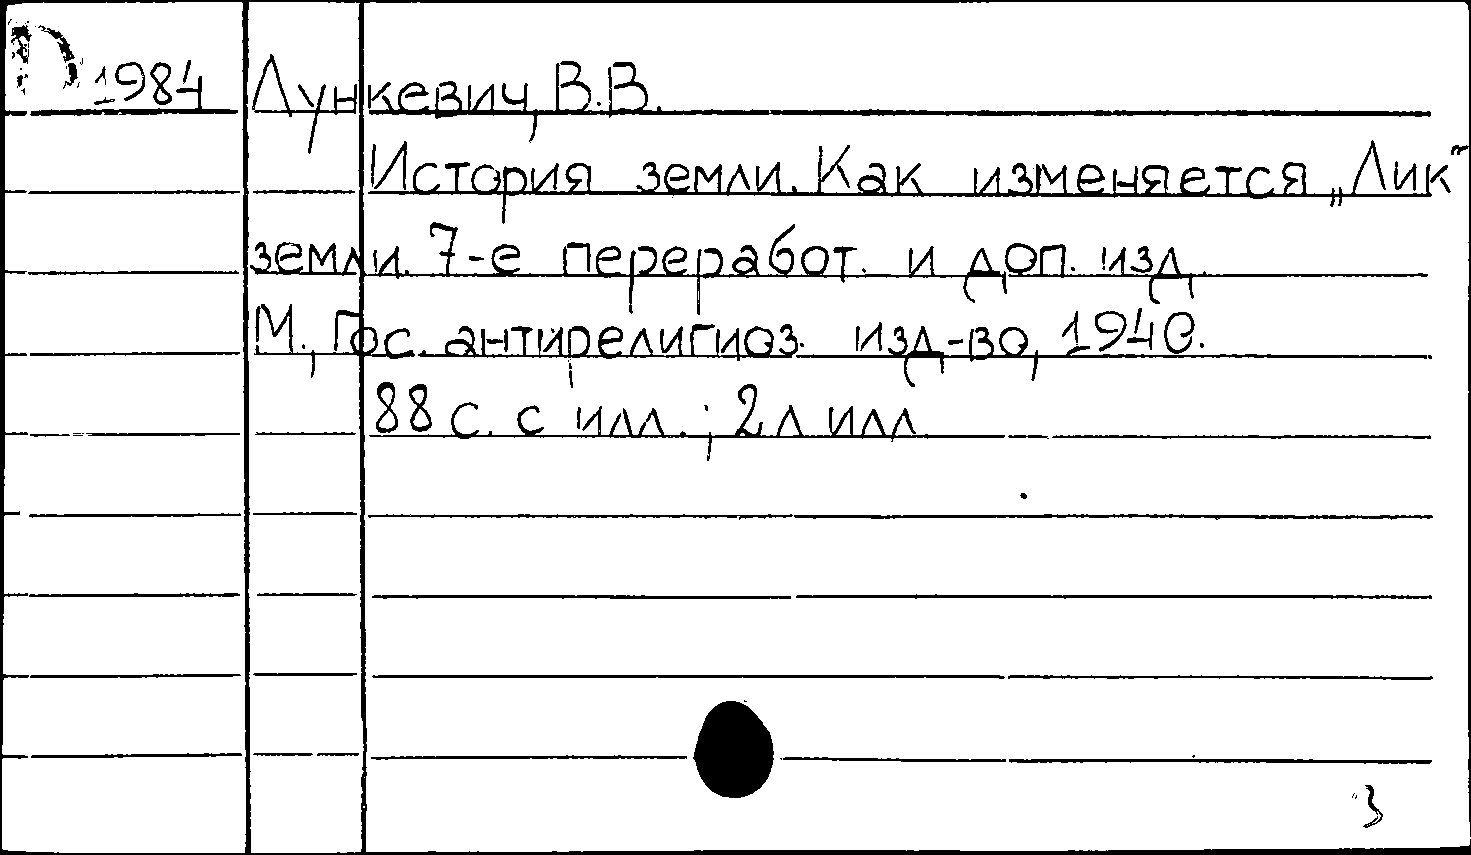 D 1984 Лункевич, В.В.
История земли. Как изменяется „Лик“
земли. 7-е переработ. и доп. изд.
М., Гос. антирелигиоз. изд-во, 1940.
88 с. с илл.; 2 л илл.
3